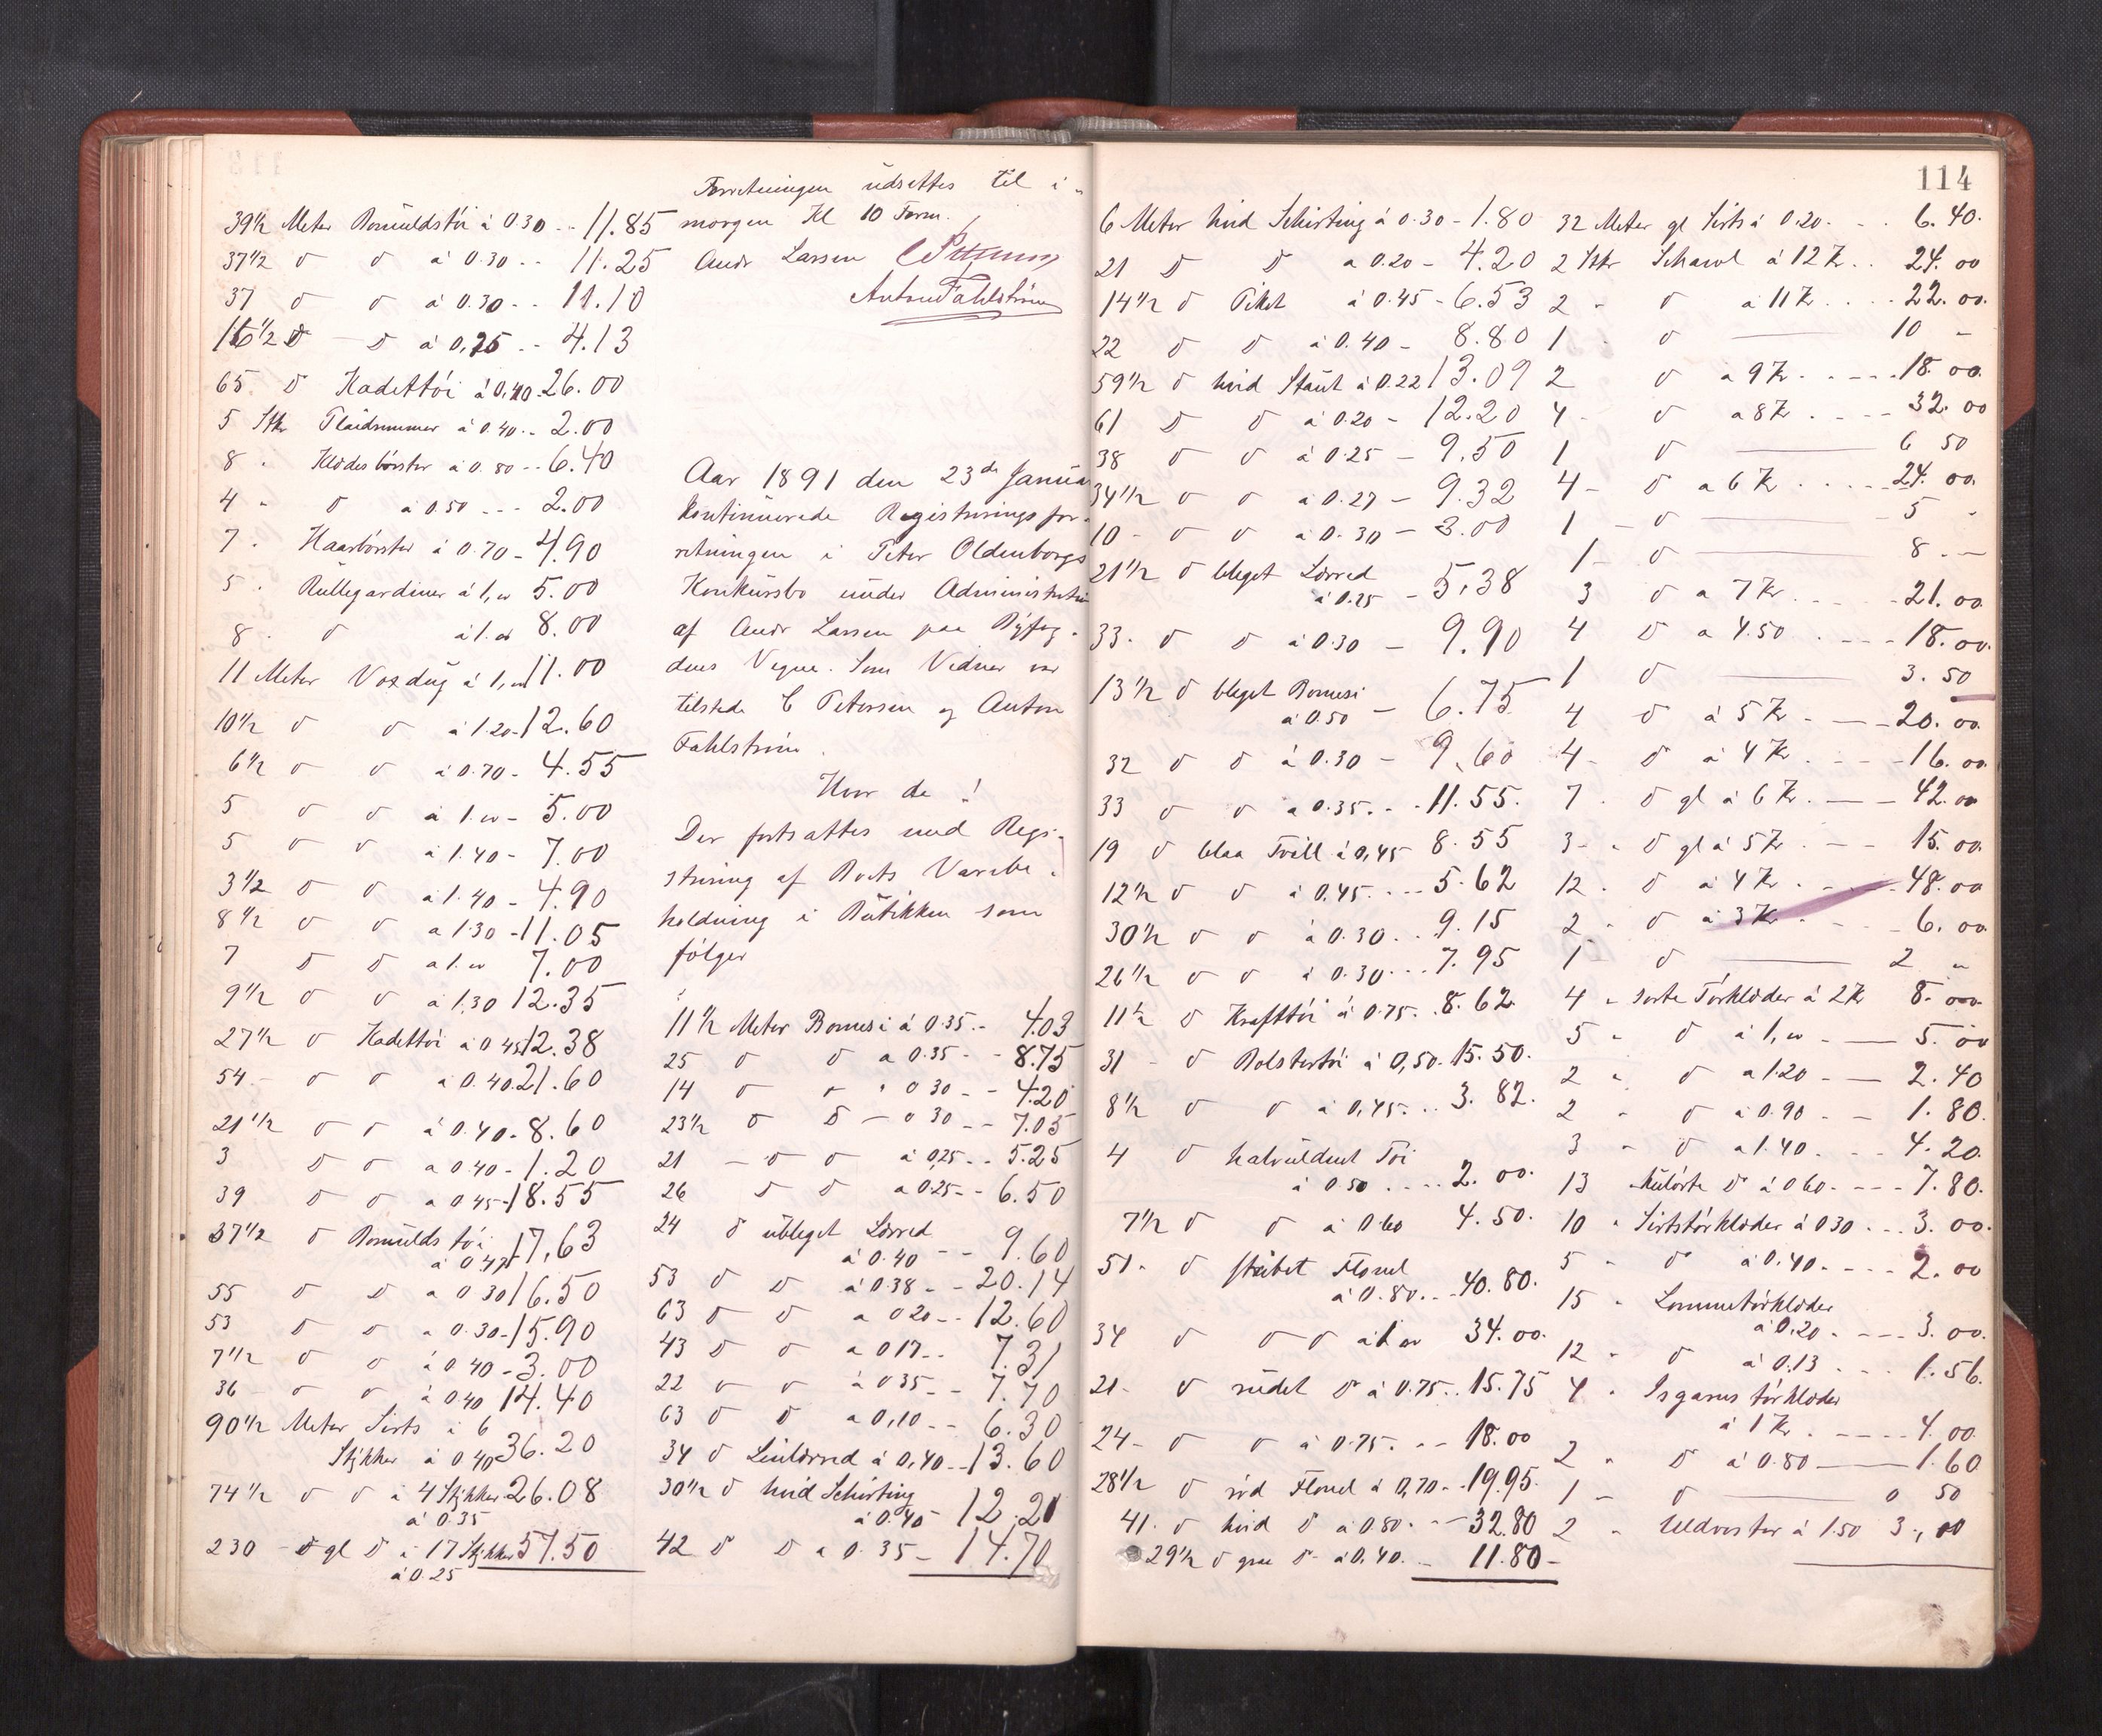 39½ Meter Bomuldstøi á 0.30 - - 11.85
37½ d d á 0.30 - - 11.25
37 d d á 0.30 - - 11.10
16½ d - d á 0,25 - - 4.13
65 d Kadettøi á 0,40 - 26.00
5 Stkr Plaidremmer á 0.40 - - 2.00
8 " Klædesbørster á 0.80 - - 6.40
4 " d á 0.50 - - - 2.00
7 " Haarbørster á 0.70 - 4.90
5 " Rullegardiner á 1,00 5.00
8 " d á 1.00 8.00
11 Meter Voxdug á 1,00 11.00
10½ d d á 1.20 - 12.60
6½ d d á 0.70 - 4.55
5 d d á 1.00 - 5.00
5 d d á 1.40 - 7.00
3½ d d á 1.40 - 4.90
8½ d d a 1.30 - 11.05
7 d d a 1.00 7.00
9½ d d á 1.30 12.35
27½ d Kadettøi á 0.45 12.38
54 - d d á 0.40 21.60
21½ d d á 0.40 - 8.60
3 d d a 0.40 - 1.20
39 d d a 0.45 - 18.55
37½ d Bomuldstøi
á 0.47 17,63
55 d d a 0.30 16.50
53 d d a 0.30 - 15.90
7½ d d á 0.40 - 3.00
36 - d d á 0.40 14.40
90½ Meter Sirts i 6
Stykker á 0.40 36.20
74½ d d i 4 Stykker 26.08
á 0.35
230 - d gl d i 17 Stykker 57.50
á 0.25
Forretningen udsettes til i-
morgen Kl 10 Form.
Andr Larsen C Petersen
Anton Fahlstrøm
Aar 1891 den 23de Januar
kontinuerede Registreringsfor-
retningen i Peter Oldenborgs
Konkursbo under Administration
af Andr Larsen paa Byfog-
dens Vegne. Som Vidner var
tilstede C Petersen og Anton
Fahlstrøm.
Hvor da!
Der fortsattes med Regi-
strering af Boets Varebe-
holdning i Butikken som
følger
11½ Meter Bomesi á 0.35 - 4.03
25 d d a 0.35 - - 8.75
14 d d " 0 30 - - 4.20
23½ d d - 0 30 - - 7.05
21 - d d á 0,25 - - 5.25
26 d d a 0.25 - - 6.50
24 d ubleget Lærred
á 0.40 - - 9.60
53 d d á 0.38 - - 20.14
63 d d a 0 20 - - 12.60
43 d d a 0 17 - - 7.31
22 d d á 0 35 - - 7.70
63 d d a 0,10 - - 6.30
34 d Linlærred á 0,40 - - 13.60
30½ d hvid Schirting
á 0.40 - 12.20
42 d d a 0.35 - 14.70
114
6 Meter hvid Schirting á 0.30 - 1.80
21 d d a 0.20 - 4.20
14½ d Piket á 0.45 - 6.53
22 d d á 0.40 - 8.80
59½ d hvid Staut á 0.22 13.09
61 d d á 0.20 - 12.20
38 d d á 0.25 - 9,50
34½ d d a 0.27 - 9.32
10 - d d á 0.30 - 3.00
21½ d bleget Lærred
á 0.25 - 5.38
33 - d d á 0.30 - 9.90
13½ d bleget Bomesi
á 0.50 - 6.75
32 d d á 0.30 - 9,60
33 d d a 0.35 - - 11.55.
19 d blaa Tvill á 0,45 8.55
12½ d d á 0.45 - - - 5.62
30½ d d á 0.30 - - 9.15
26½ d d á 0.30 - - - 7.95
11½ d Krafttøi á 0.75 - 8.62
31 - d Bolstertøi á 0,50 - 15.50.
8½ d d á 0,45 - - 3.82.
4 d halvuldent Tøi
á 0.50 - - - - 2.00.
7½ d d á 0.60 4.50.
51 - d stribet Flonel
á 0.80 - - 40.80.
34 d d d á 1.00 34.00.
21 - d rudet d á 0.75 - - 15.75
24 - d d á 0.75 - - 18.00
28½ d rød Flonel á 0,70 - - 19.95
41 - d hvid d á 0.80 - - 32.80
29½ d graa d á 0,40 - - 11.80 -
32 Meter gl Sirts á 0.20 - - 6.40.
2 Stkr Schawl á 12 Kr - - 24.00
2 - d a 11 Kr - - - - 22.00.
1 - d - 10 -
2 d a 9 Kr - - - - 18.00.
4 - d a 8 Kr - - - - 32.00
1 d - 6 50
4 - d a 6 Kr - - - - 24.00.
1 - d - 5 -
1 - d - 8 - -
3 d a 7 Kr - - - 21.00.
4 d a 4.50 - - - - 18.00.
1 d - 3.50
4 d á 5 Kr - - - 20.00.
4 - d á 4 Kr - - - - 16.00.
7 - d gl á 6 Kr - - - 42.00
3 - " d gl á 5 Kr - - - 15.00.
12 - d á 4 Kr - - - - 48.00
2 " d á 3 Kr - - - - 6.00
1 - d - 2 "
4 " sorte Tørklæder á 2 Kr 8.00
5 " d á 1,00 - - 5.00
2 " d a 1.20 - - 2.40
2 " d á 0.90 - - 1.80.
3 " d a 1.40 - - - 4.20.
13 kulørte d á 0 60 - - - 7.80.
10 " Sirtstørklæder á 0 30 - - 3.00.
5 " d á 0,40 - - - - 2.00
15 " Lommetørklæder
á 0,20 - - - - 3.00.
12 " d á 0,13 - - - 1.56.
4 " Isgarns tørklæder
á 1 Kr - - - - - 4.00
2 " d á 0.80 - - 1.60
1 - d - 0 50
2 " Uldvester á 1.50 3.,00